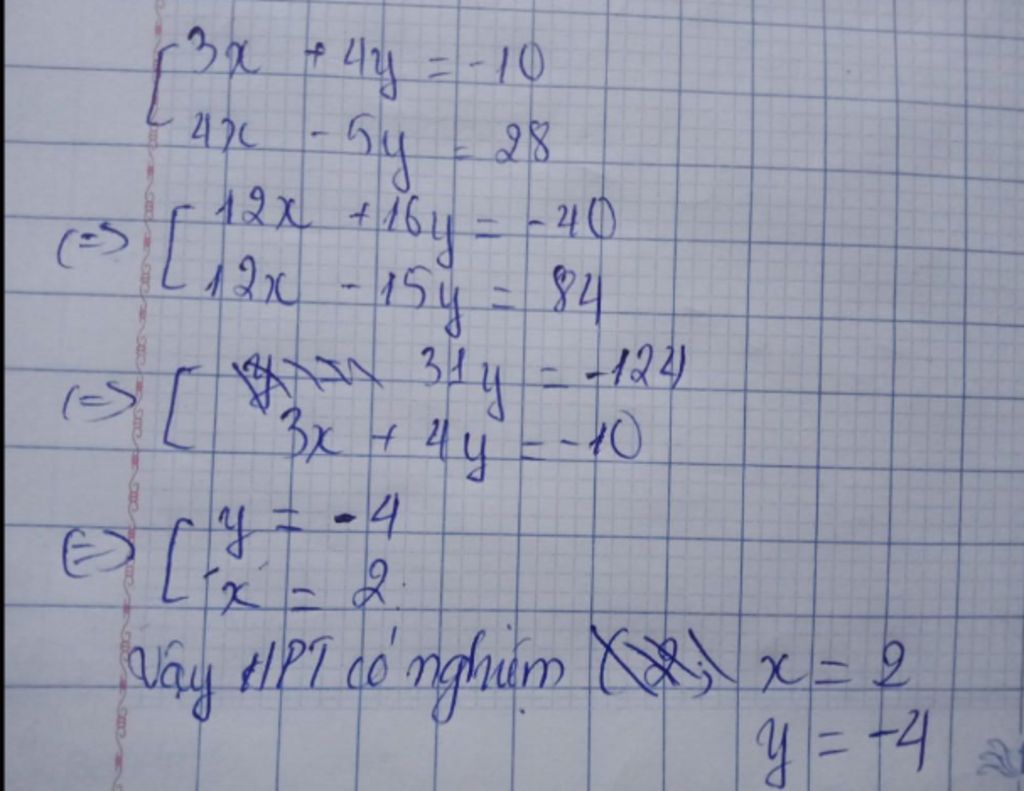 [3x + 4y = -10
4x - 5y = 28
(=) [12x + 16y = -40
12x - 15y = 84
(=) [ 31y = -124
3x + 4y = -10
(=) [y = -4
x = 2.
Vậy HPT có nghiệm x = 2
y = -4